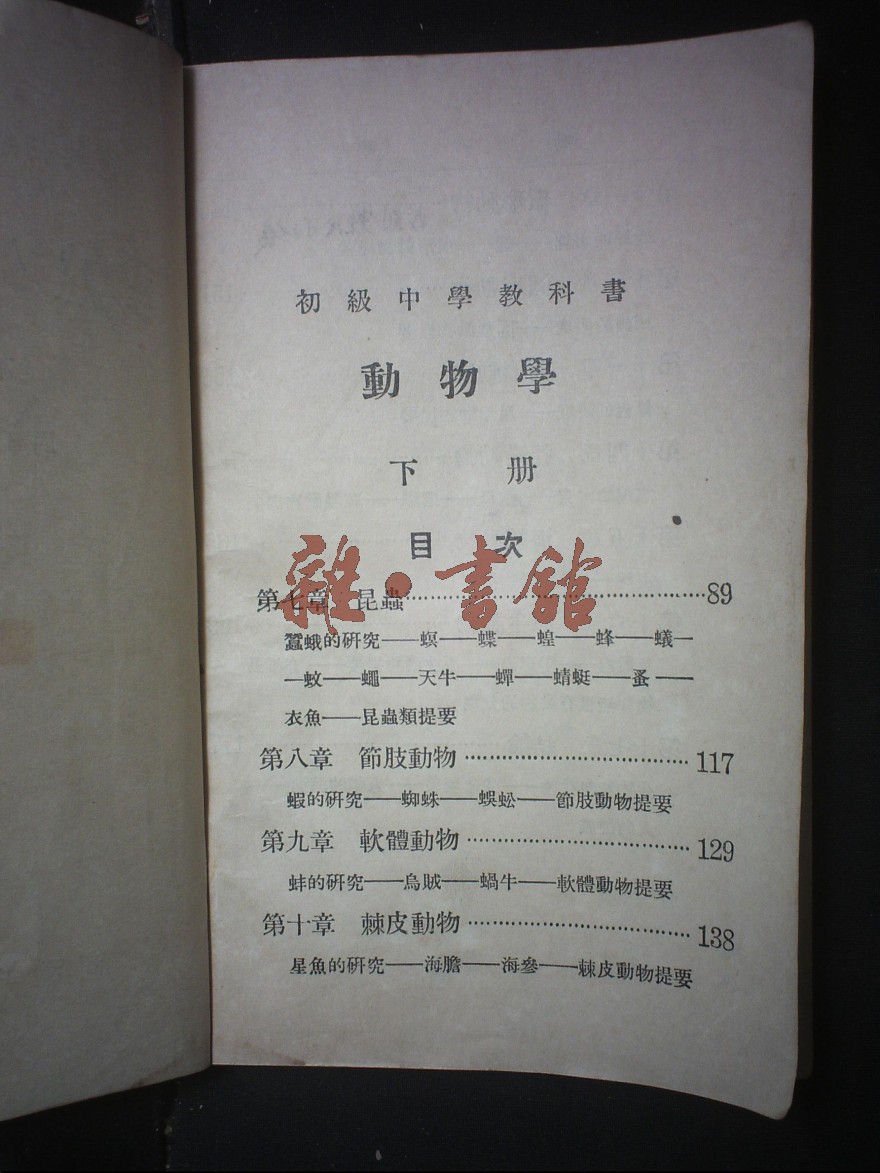 初級中學教科書
動物學
下册
目次
雜·書館
第七章 昆蟲……89
蠶蛾的研究——螟——蝶——蝗——蜂——蟻—
—蚊——蠅——天牛——蟬——蜻蜓——蚤——
衣魚——昆蟲類提要
第八章 節肢動物……117
蝦的研究——蜘蛛——蜈蚣——節肢動物提要
第九章 軟體動物……129
蚌的研究——烏賊——蝸牛——軟體動物提要
第十章 棘皮動物……138
星魚的研究——海膽——海參——棘皮動物提要